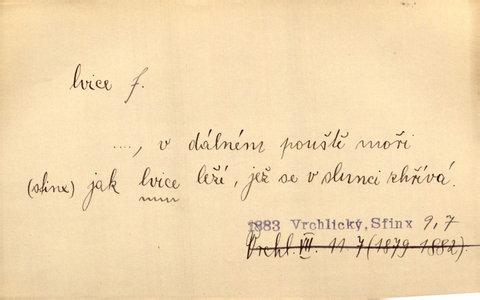 lvice f.
...., v dálném pouště moři
(sfinx) jak lvice leží, jež se v slunci zhřívá.
1883 Vrchlický, Sfinx 9, 7
Vrchl. VII. 11 7 (1879-1882).